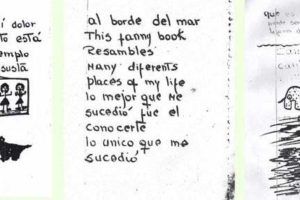 í dolor
to está
emplo
susta
al borde del mar
This fanny book
Resambles
Many diferents
places of my life
lo mejor que me
sucedió fue el
conocerte
lo unico que me
sucedió
que es